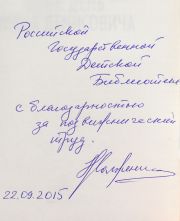 Российской
Государственной
Детской
Библиотеке
с благодарностью
за подвижнический
труд.
22.09.2015